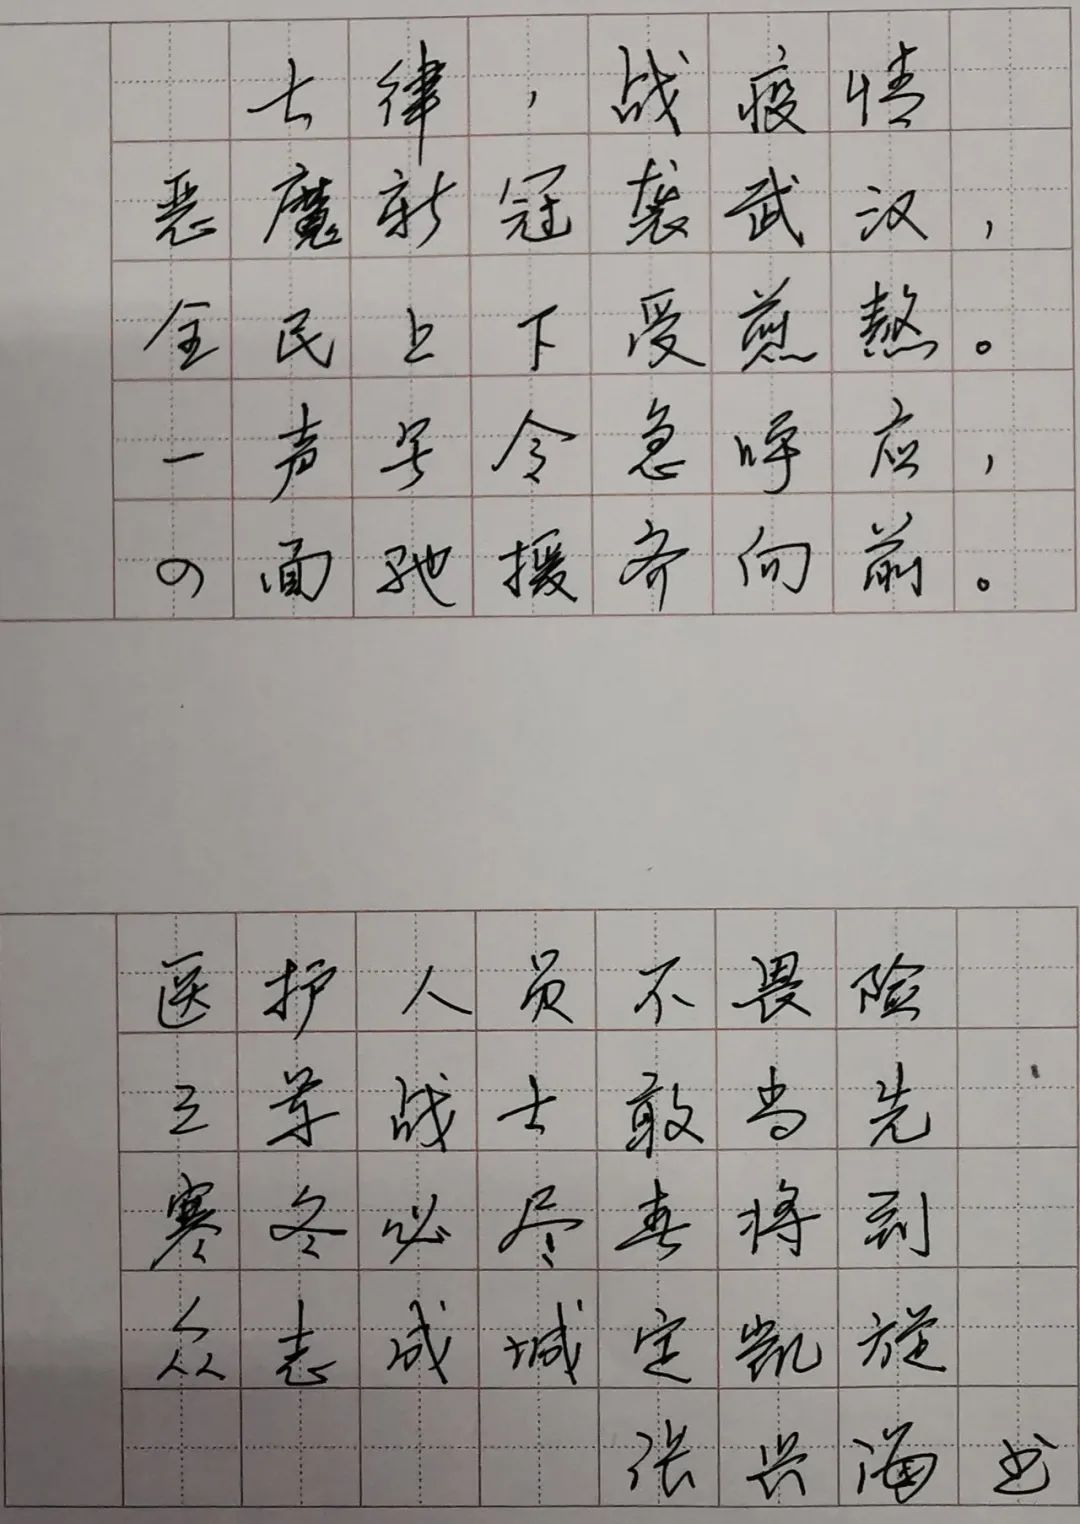 七律，战疫情
恶魔新冠袭武汉，
全民上下受煎熬。
一声号令急呼应，
四面驰援齐向前。
医护人员不畏险
三军战士敢当先
寒冬必尽春将到
众志成城定凯旋
张兴海书